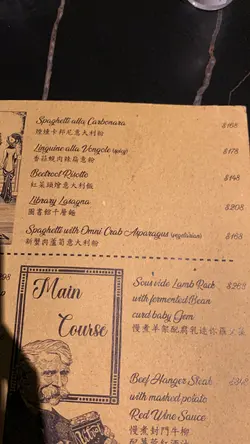 Spaghetti alla Carbonara $168
煙燻卡邦尼意大利粉
Linguine alla Vongole (spicy) $178
香蒜蜆肉辣扁意粉
Beetroot Risotto $148
紅菜頭燴意大利飯
Library Lasagna $208
圖書館千層麵
Spaghetti with Omni Crab Asparagus (vegetarian) $168
新蟹肉蘆筍意大利粉
Main
Course
Sous vide Lamb Rack $263
with fermented Bean
curd baby Gem
慢煮羊架配腐乳迷你羅
Beef Hanger Steak
with mashed potato
Red Wine Sauce
慢煮封門牛柳